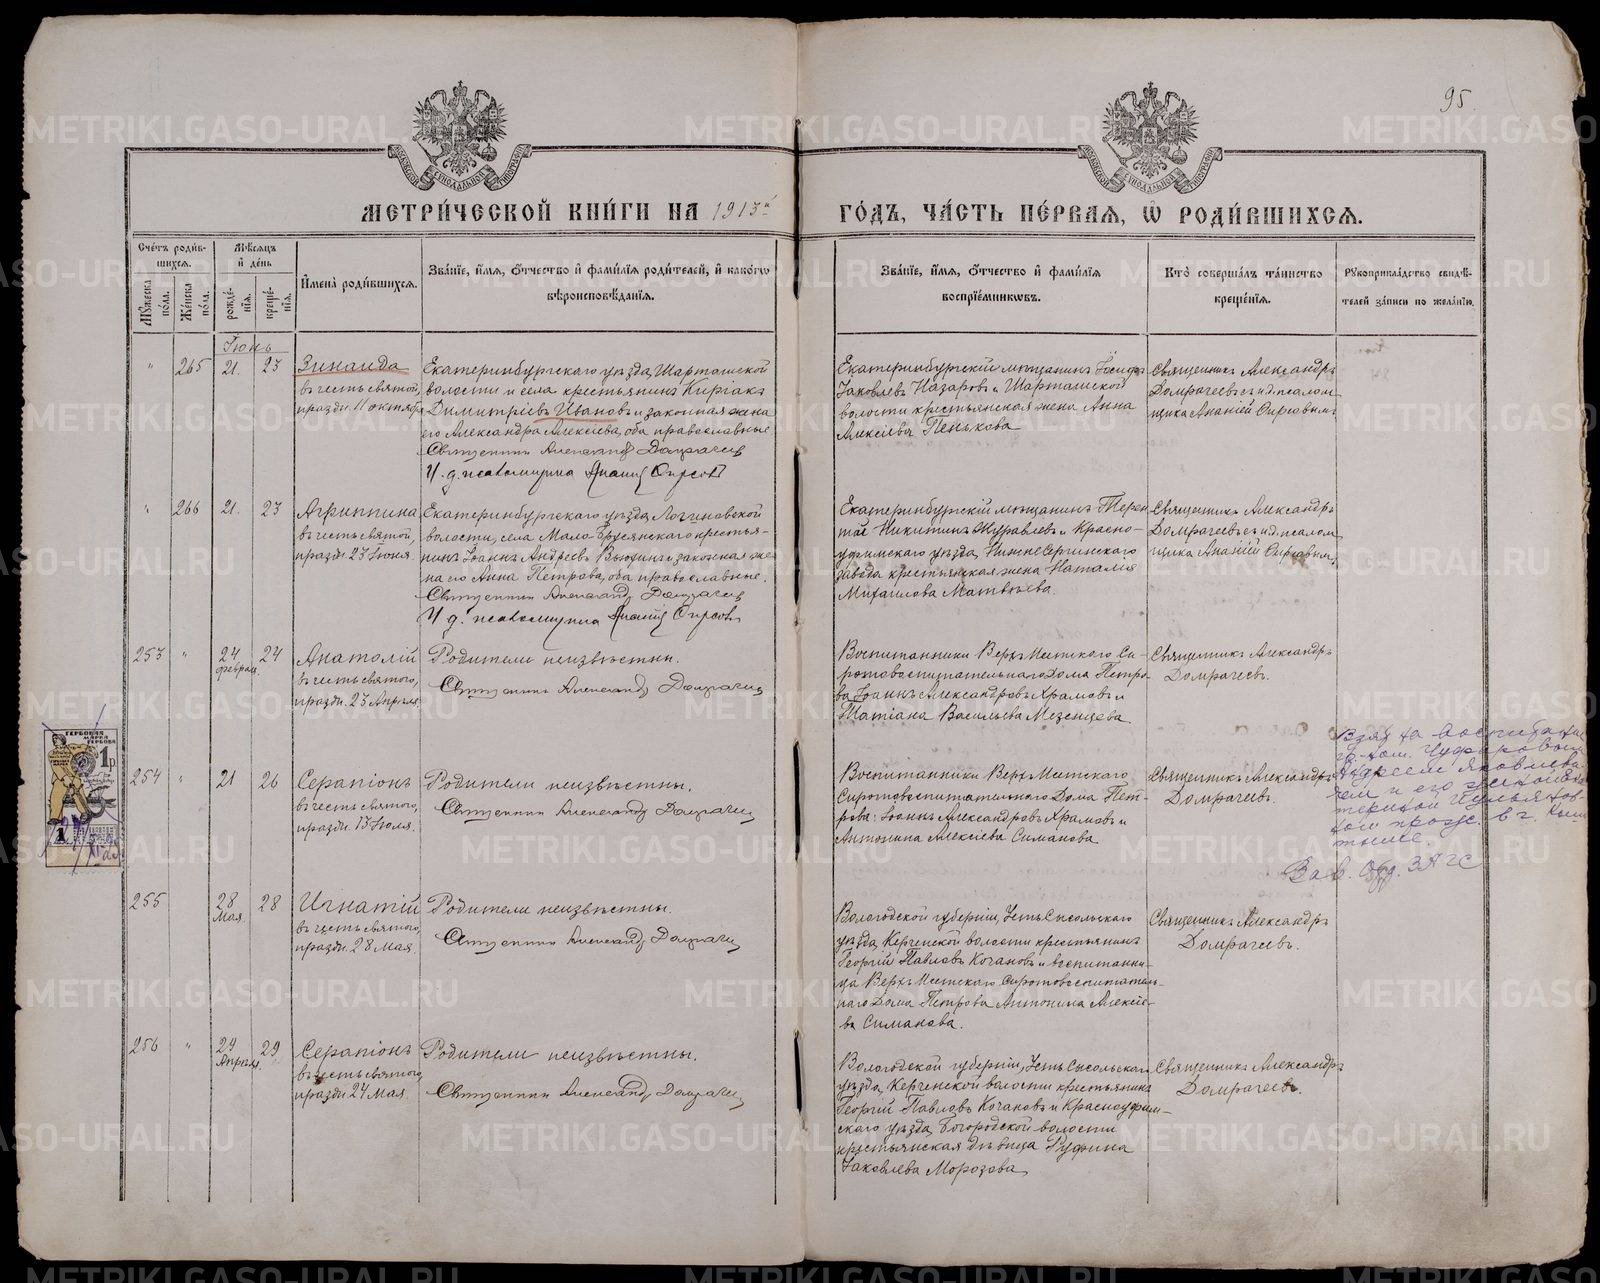 95.
МОСКОВСКОЙ СѴНОДАЛЬНОЙ ТИПОГРАФІИ
МЕТРИ́ЧЕСКОЙ КНИ́ГИ НА 1913й ГО́ДЪ, ЧА́СТЬ ПЕ́РВАЯ, Ѽ РОДИ́ВШИХСЯ.
Сче́тъ роди́вшихся.
Му́жеска по́ла.
Же́нска по́ла.
Мѣ́сяцъ и҆ де́нь
рожде́нїя.
креще́нїя.
И҆мена̀ роди́вшихся.
Зва́нїе, и҆́мя, ѻ҆́тчество и҆ фами́лїя роди́телей, и҆ како́гѡ
вѣроисповѣ́данїя.
Зва́нїе, и҆́мя, ѻ҆́тчество и҆ фами́лїя
воспрїе́мникѡвъ.
Кто̀ соверша́лъ та́инство
креще́нїя.
Рꙋкоприкла́дство свидѣ́-
телей за́писи по жела́нїю.
Іюнь
" 265 21. 23
Зинаида
въ честь святой,
праздн. 11 октября
Екатеринбургскаго уѣзда, Шарташской
волости и села крестьянинъ Киріакъ
Димитріевъ Ивановъ и законная жена
его Александра Алексіева, оба православные
Священникъ Александръ Домрачевъ
И. д. псаломщика Ананій Сирсовъ
Екатеринбургскій мѣщанинъ Іосифъ
Іаковлевъ Назаровъ и Шарташской
волости крестьянская жена Анна
Алексіева Пенькова
Священникъ Александръ
Домрачевъ съ и.д. псалом-
щика Ананіей Сирсовымъ
" 266 21. 23
Агриппина
въ честь святой,
праздн. 23 Іюня.
Екатеринбургскаго уѣзда, Логиновской
волости, села Мало-Брусянскаго крестья-
нинъ Іоаннъ Андреевъ Вьюхинъ и законная же-
на его Анна Петрова, оба православные.
Священникъ Александръ Домрачевъ
И. д. псаломщика Ананій Сирсовъ
Екатеринбургскій мѣщанинъ Терен-
тій Никитинъ Журавлевъ и Красно-
уфимскаго уѣзда, Нижне Сергинскаго
завода крестьянская жена Наталія
Михаилова Матвѣева.
Священникъ Александръ
Домрачевъ съ и.д. псалом-
щика Ананій Сирсовымъ
253 " 24 феврал. 24
Анатолій
въ честь святого,
праздн. 23 Апрѣля
Родители неизвѣстны.
Священникъ Александръ Домрачевъ
Воспитанники Верхъ-Исетскаго Си-
ротовоспитательнаго Дома Петро-
ва Іоаннъ Александровъ Храмовъ и
Татіана Васильева Мезенцева
Священникъ Александръ
Домрачевъ.
ГЕРБОВАЯ
МАРКА
1 р
254 " 21 26
Серапіонъ
въ честь святого,
праздн. 13 Іюля.
Родители неизвѣстны.
Священникъ Александръ Домрачевъ
Воспитанники Верхъ-Исетскаго
Сиротовоспитательнаго Дома Пет-
рова: Іоаннъ Александровъ Храмовъ и
Антонина Алексіева Симанова
Священникъ Александръ
Домрачевъ.
Взят на воспитание
Андреем Яковлеви-
чем и его женой
в г. Кыш-
тыме.
Зав. Отд. ЗАГС
255 28 Мая. 28
Игнатій
въ честь святого,
праздн. 28 Мая.
Родители неизвѣстны.
Священникъ Александръ Домрачевъ
Вологодской губерніи, Усть Сысольскаго
уѣзда, Керченской волости крестьянинъ
Георгій Павловъ Кочановъ и воспитанни-
ца Верхъ-Исетскаго Сиротовоспитатель-
наго Дома Петрова Антонина Алексіе-
ва Симанова.
Священникъ Александръ
Домрачевъ.
256 " 29 Апрѣля. 29
Серапіонъ
въ честь святого
праздн. 24 Мая.
Родители неизвѣстны.
Священникъ Александръ Домрачевъ
Вологодской губерніи, Усть Сысольскаго
уѣзда, Керченской волости крестьянинъ
Георгій Павловъ Кочановъ и Красноуфим-
скаго уѣзда, Богородской волости
крестьянская дѣвица Руфина
Іаковлева Морозова
Священникъ Александръ
Домрачевъ.
METRIKI.GASO-URAL.RU